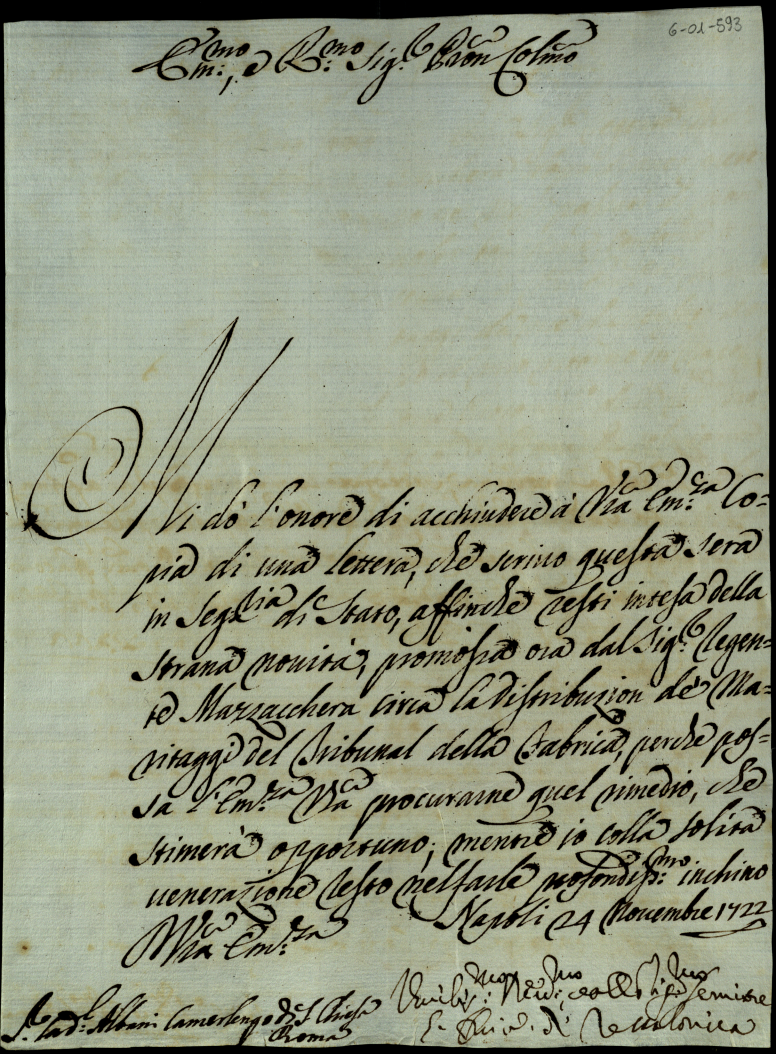 6-01-593
Em:mo, e R:mo Sig.r Pron Colmo
Mi dò l'onore di acchiudere à Vra Em:za Co=
pia di una lettera, che scrivo questa sera
in Seg.ria di Stato, affinche resti intesa della
strana novità, promossa ora dal Sig.r Regen=
te Mazzacchera circa la distribuzion de' Ma=
ritaggi del Tribunal della Fabrica, perche pos=
sa l'Em:za Vra procurarne quel rimedio, che
stimerà opportuno; mentre io colla solita
venerazione resto nel farle profondiss:mo inchino
Napoli 24 Novembre 1722
Vra Em:za
Umilis:mo Dev:mo ed Obblig:mo Servitore
S.r Card.l Albani Camerlengo di S. Chiesa
Roma